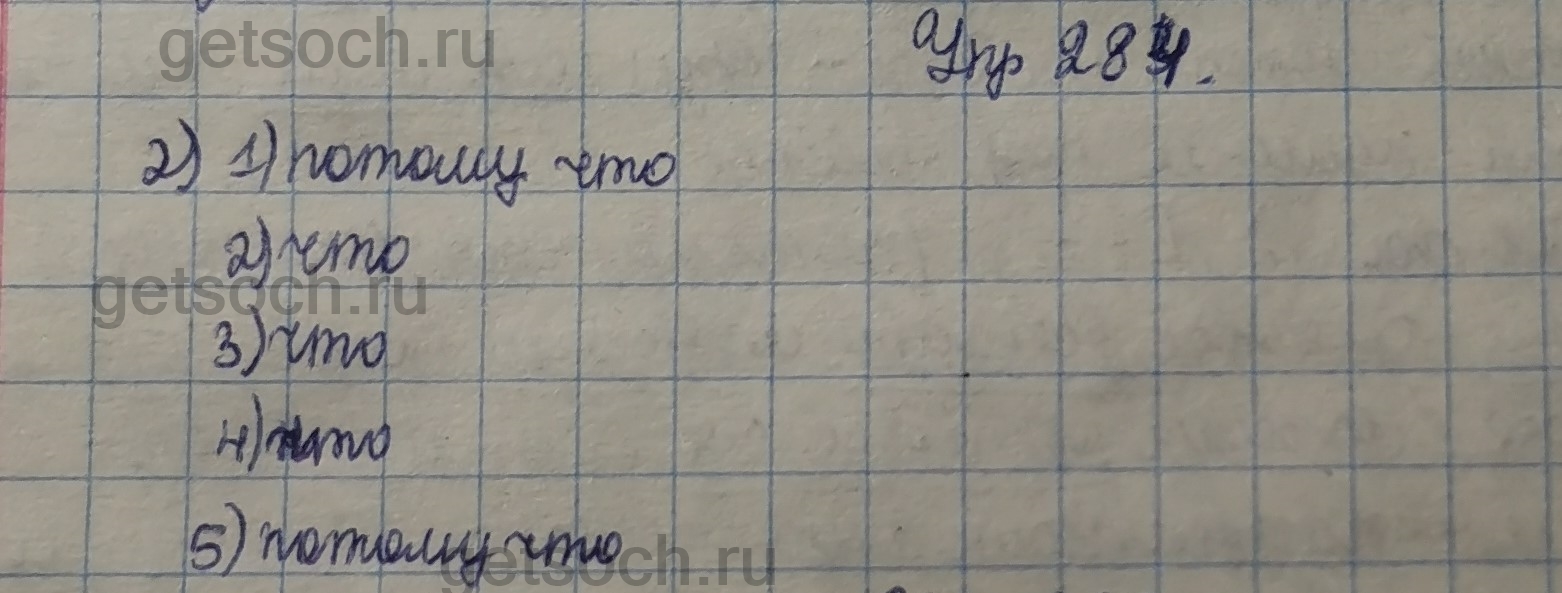 getsoch.ru
Упр 284.
2) 1) потому что
2) что
getsoch.ru
3) что
4) что
5) потому что
getsoch.ru